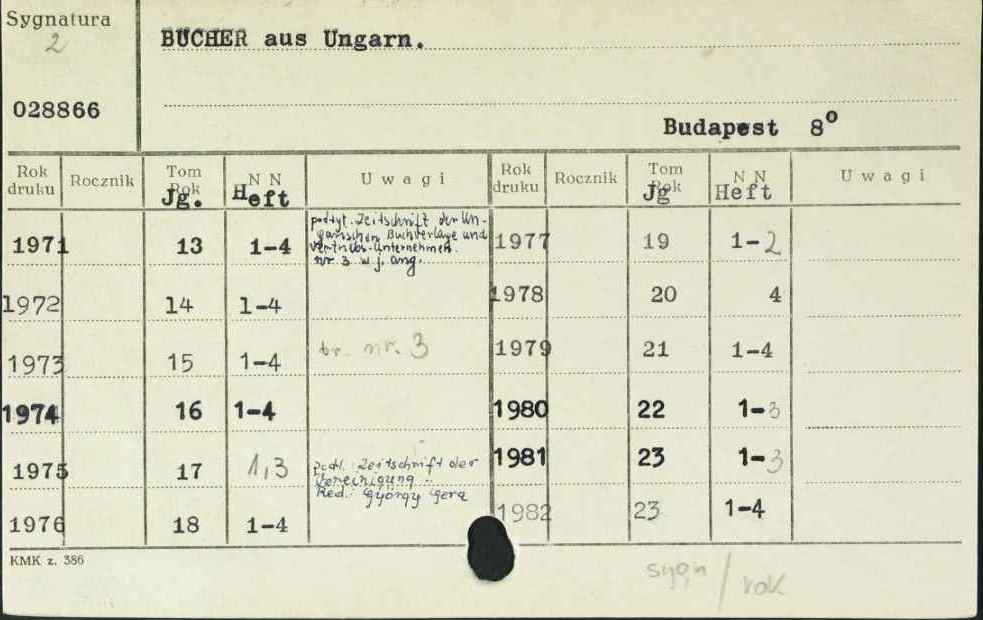 Sygnatura
2
BÜCHER aus Ungarn.
028866
Budapest 8°
Rok druku Rocznik Tom Rok Jg. NN Heft Uwagi Rok druku Rocznik Tom Rok Jg NN Heft Uwagi
1971 13 1-4 podtyt. Zeitschrift der Un-
garischen Buchverlage und
Vertriebs-Unternehmen.
nr. 3 w j. ang.
1977 19 1-2
1972 14 1-4
1978 20 4
1973 15 1-4 br. nr. 3
1979 21 1-4
1974 16 1-4
1980 22 1-3
1975 17 1,3 Zeitschrift der
Vereinigung
Red.: György Gera
1981 23 1-3
1976 18 1-4
1982 23 1-4
KMK z. 386
sygn / rok